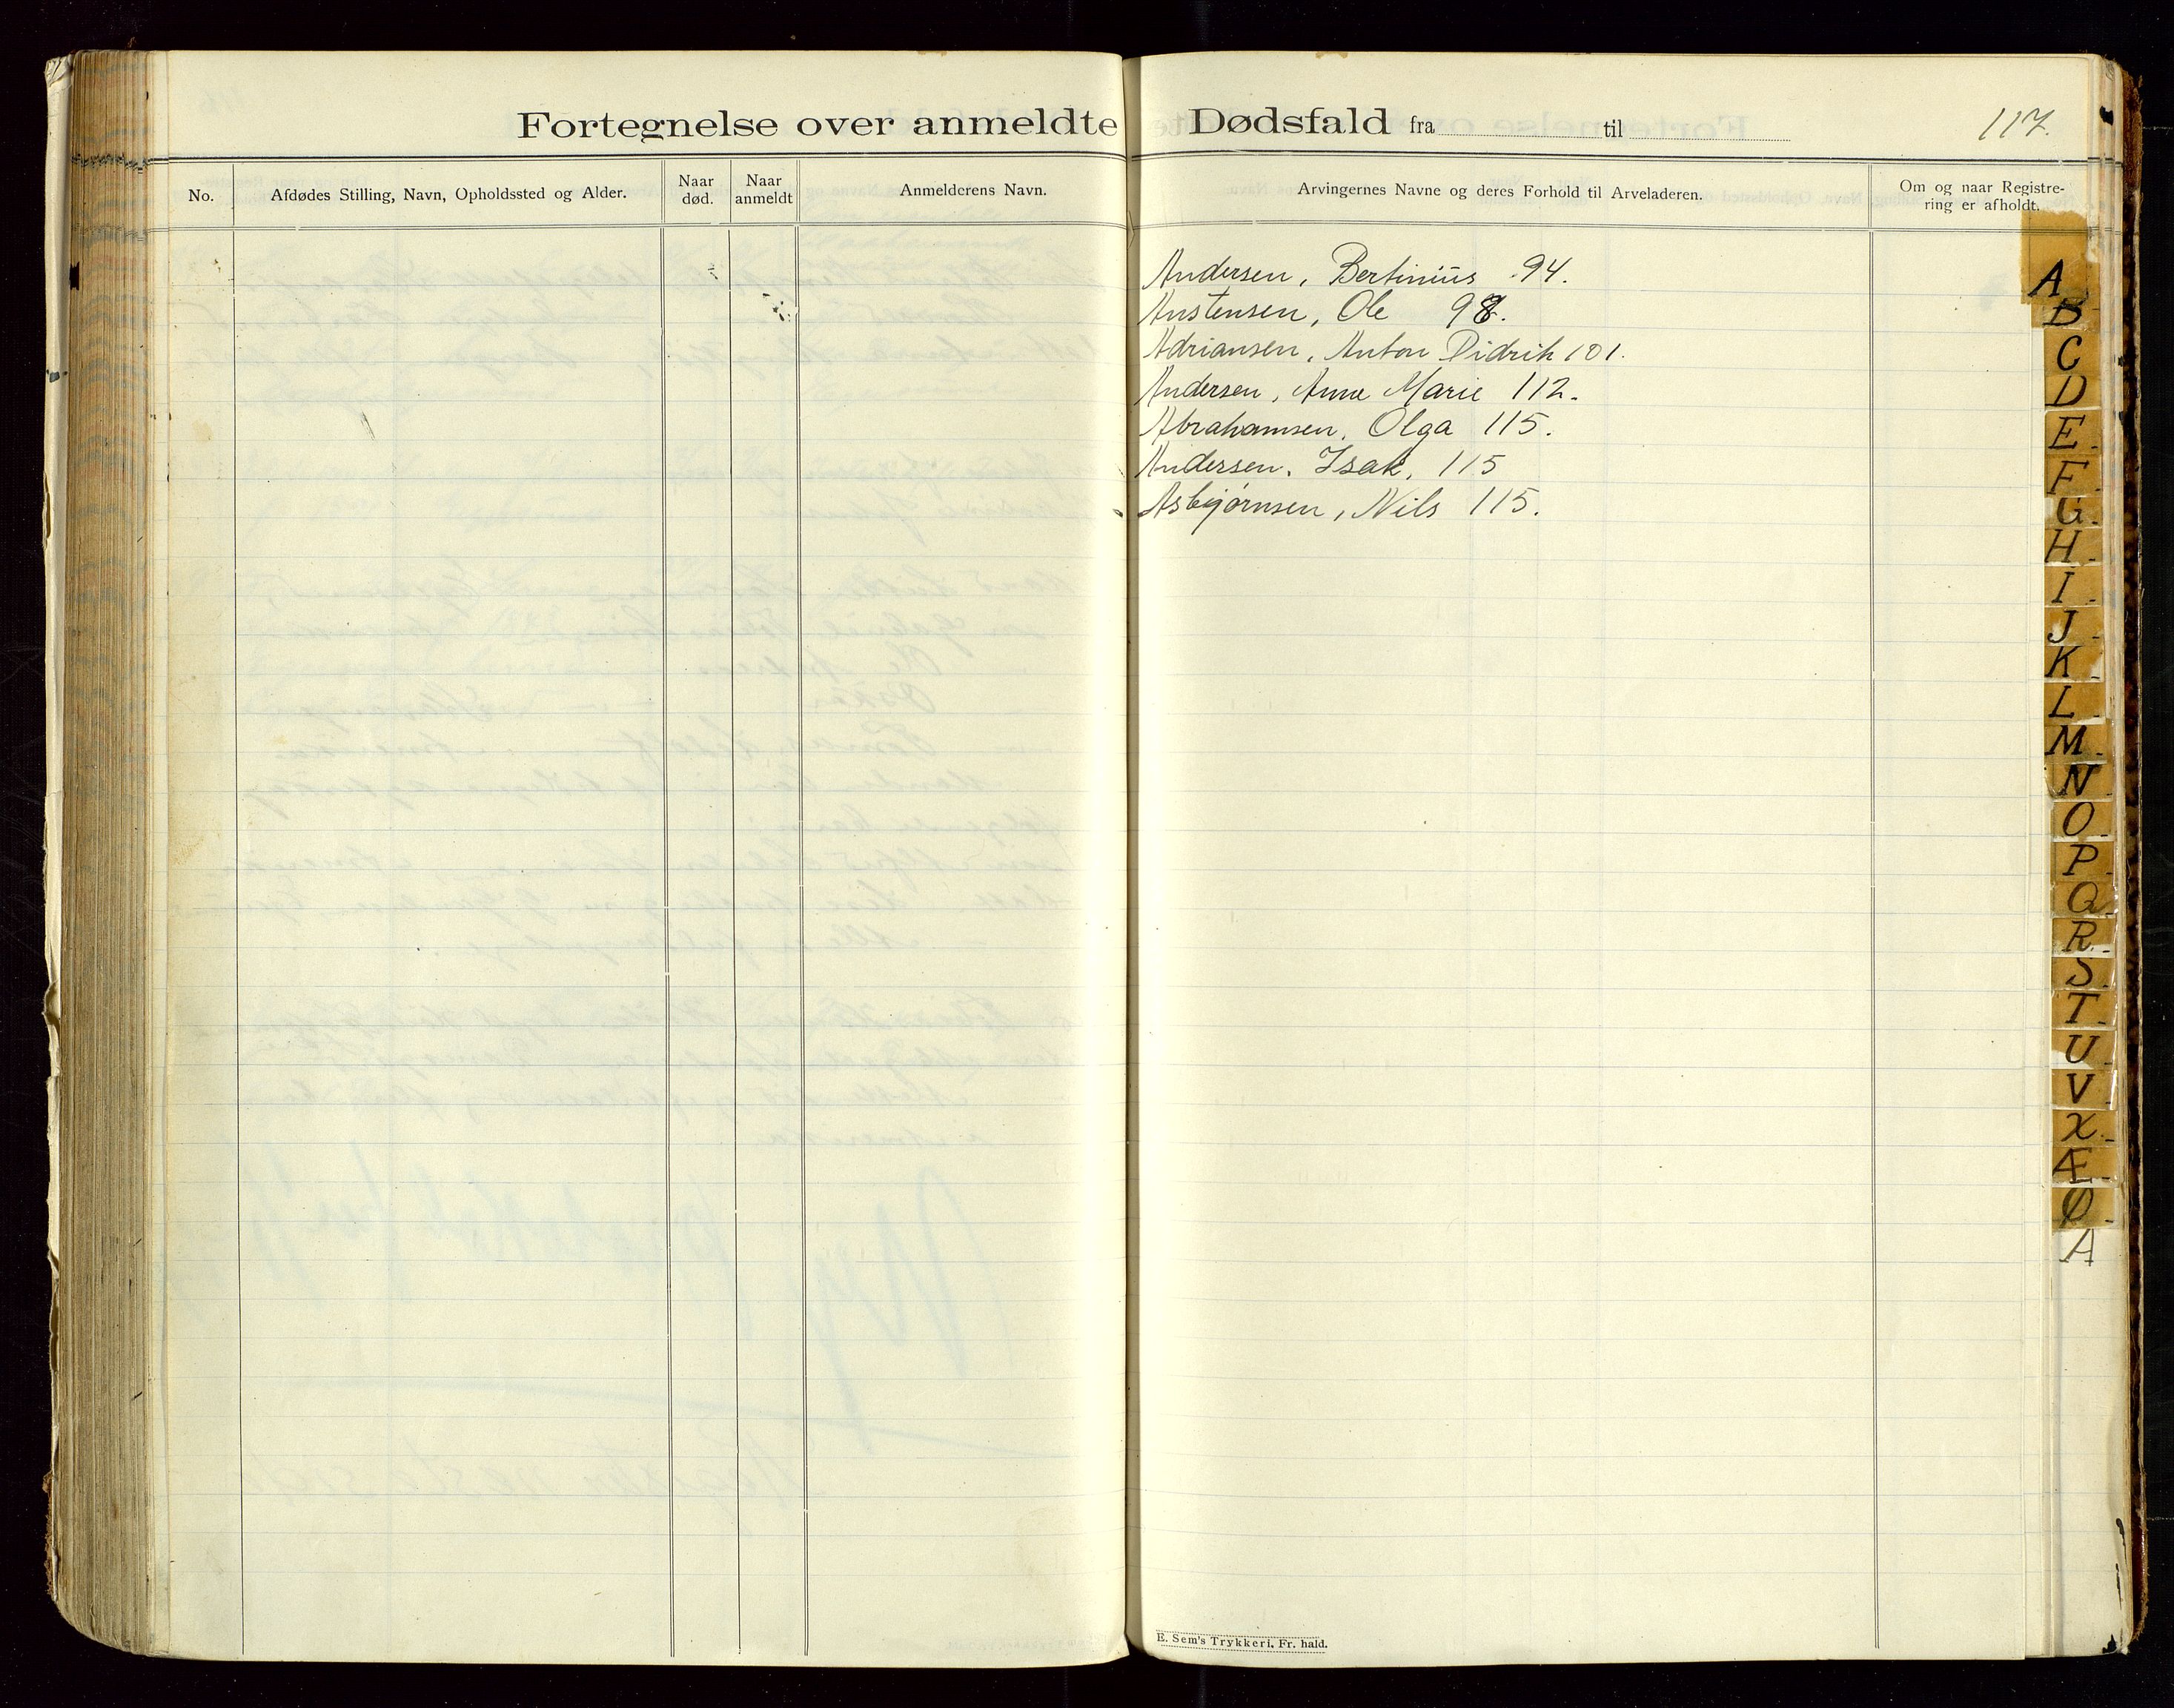 Fortegnelse over anmeldte Dødsfald fra til
117.
No.
Afdødes Stilling, Navn, Opholdssted og Alder.
Naar død.
Naar anmeldt
Anmelderens Navn.
Arvingernes Navne og deres Forhold til Arveladeren.
Om og naar Registre-
ring er afholdt.
Andersen, Bertinius 94.
Austensen, Ole 98.
Adriansen, Anton Didrik 101.
Andersen, Anne Marie 112.
Abrahamsen, Olga 115.
Andersen, Isak, 115
Asbjørnsen, Nils 115.
A
B
C
D
E
F
G
H
I
J
K
L
M
N
O
P
Q
R
S
T
U
V
X
Æ
Ø
A
E. Sem's Trykkeri, Fr. hald.